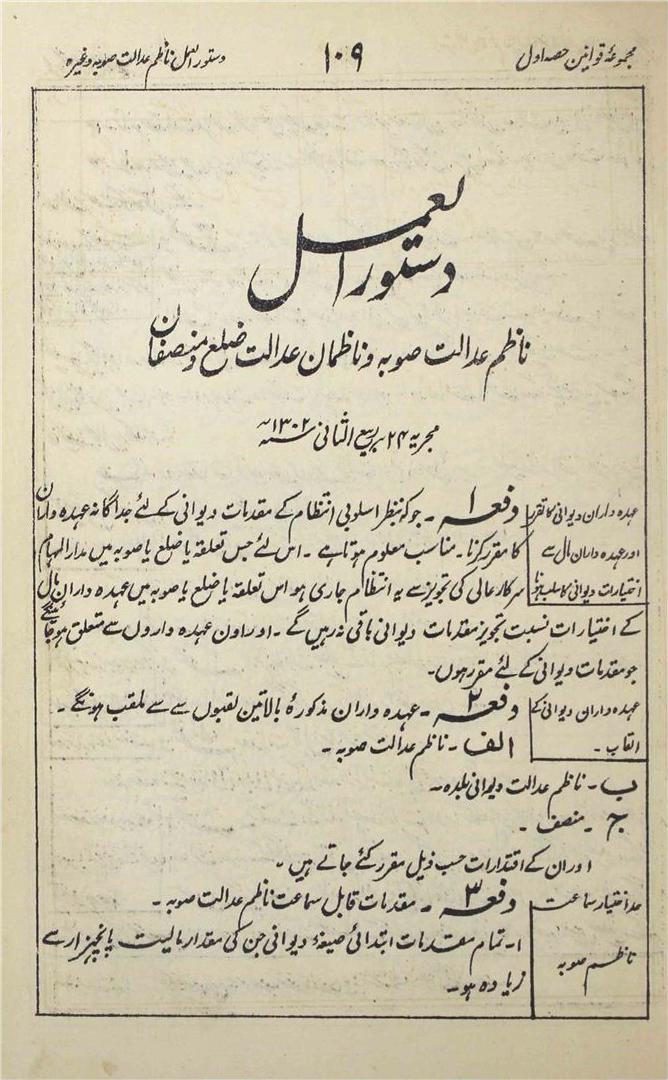 مجموعۂ قوانین حصہ اول
۱۰۹
دستور العمل ناظم عدالت صوبہ وغیرہ
دستور العمل
ناظم عدالت صوبہ و ناظمان عدالت ضلع و منصفان
مجریہ ۲۴ ربیع الثانی سنہ ۱۳۰۲
عہدہ داران دیوانی کا تقرر
اور عہدہ داران مال سے
اختیارات دیوانی کا سلب ہونا
دفعہ ۱ ۔ جو کہ بنظر اسلوبی انتظام کے مقدمات دیوانی کے لئے جداگانہ عہدہ داران
کا مقرر کرنا ۔ مناسب معلوم ہوتا ہے ۔ اس لئے جس تعلقہ یا ضلع یا صوبہ میں مدار المہام
سرکار عالی کی تجویز سے یہ انتظام جاری ہو اس تعلقہ یا ضلع یا صوبہ میں عہدہ داران مال
کے اختیارات نسبت تجویز مقدمات دیوانی باقی نہ رہیں گے ۔ اور اون عہدہ داروں سے متعلق ہو جائینگے
جو مقدمات دیوانی کے لئے مقرر ہوں۔
عہدہ داران دیوانی کے
القاب ۔
دفعہ ۲ ۔ عہدہ داران مذکورۂ بالا تین لقبوں سے سے ملقب ہونگے ۔
الف ۔ ناظم عدالت صوبہ ۔
ب ۔ ناظم عدالت دیوانی بلدہ ۔
ج ۔ منصف ۔
اور ان کے اقتدارات حسب ذیل مقرر کئے جاتے ہیں ۔
حد اختیار سماعت
ناظم صوبہ
دفعہ ۳ ۔ مقدمات قابل سماعت ناظم عدالت صوبہ ۔
۱۔ تمام مقدمات ابتدائی صیغۂ دیوانی جن کی مقدار مالیت پانچہزار سے
زیادہ ہو ۔